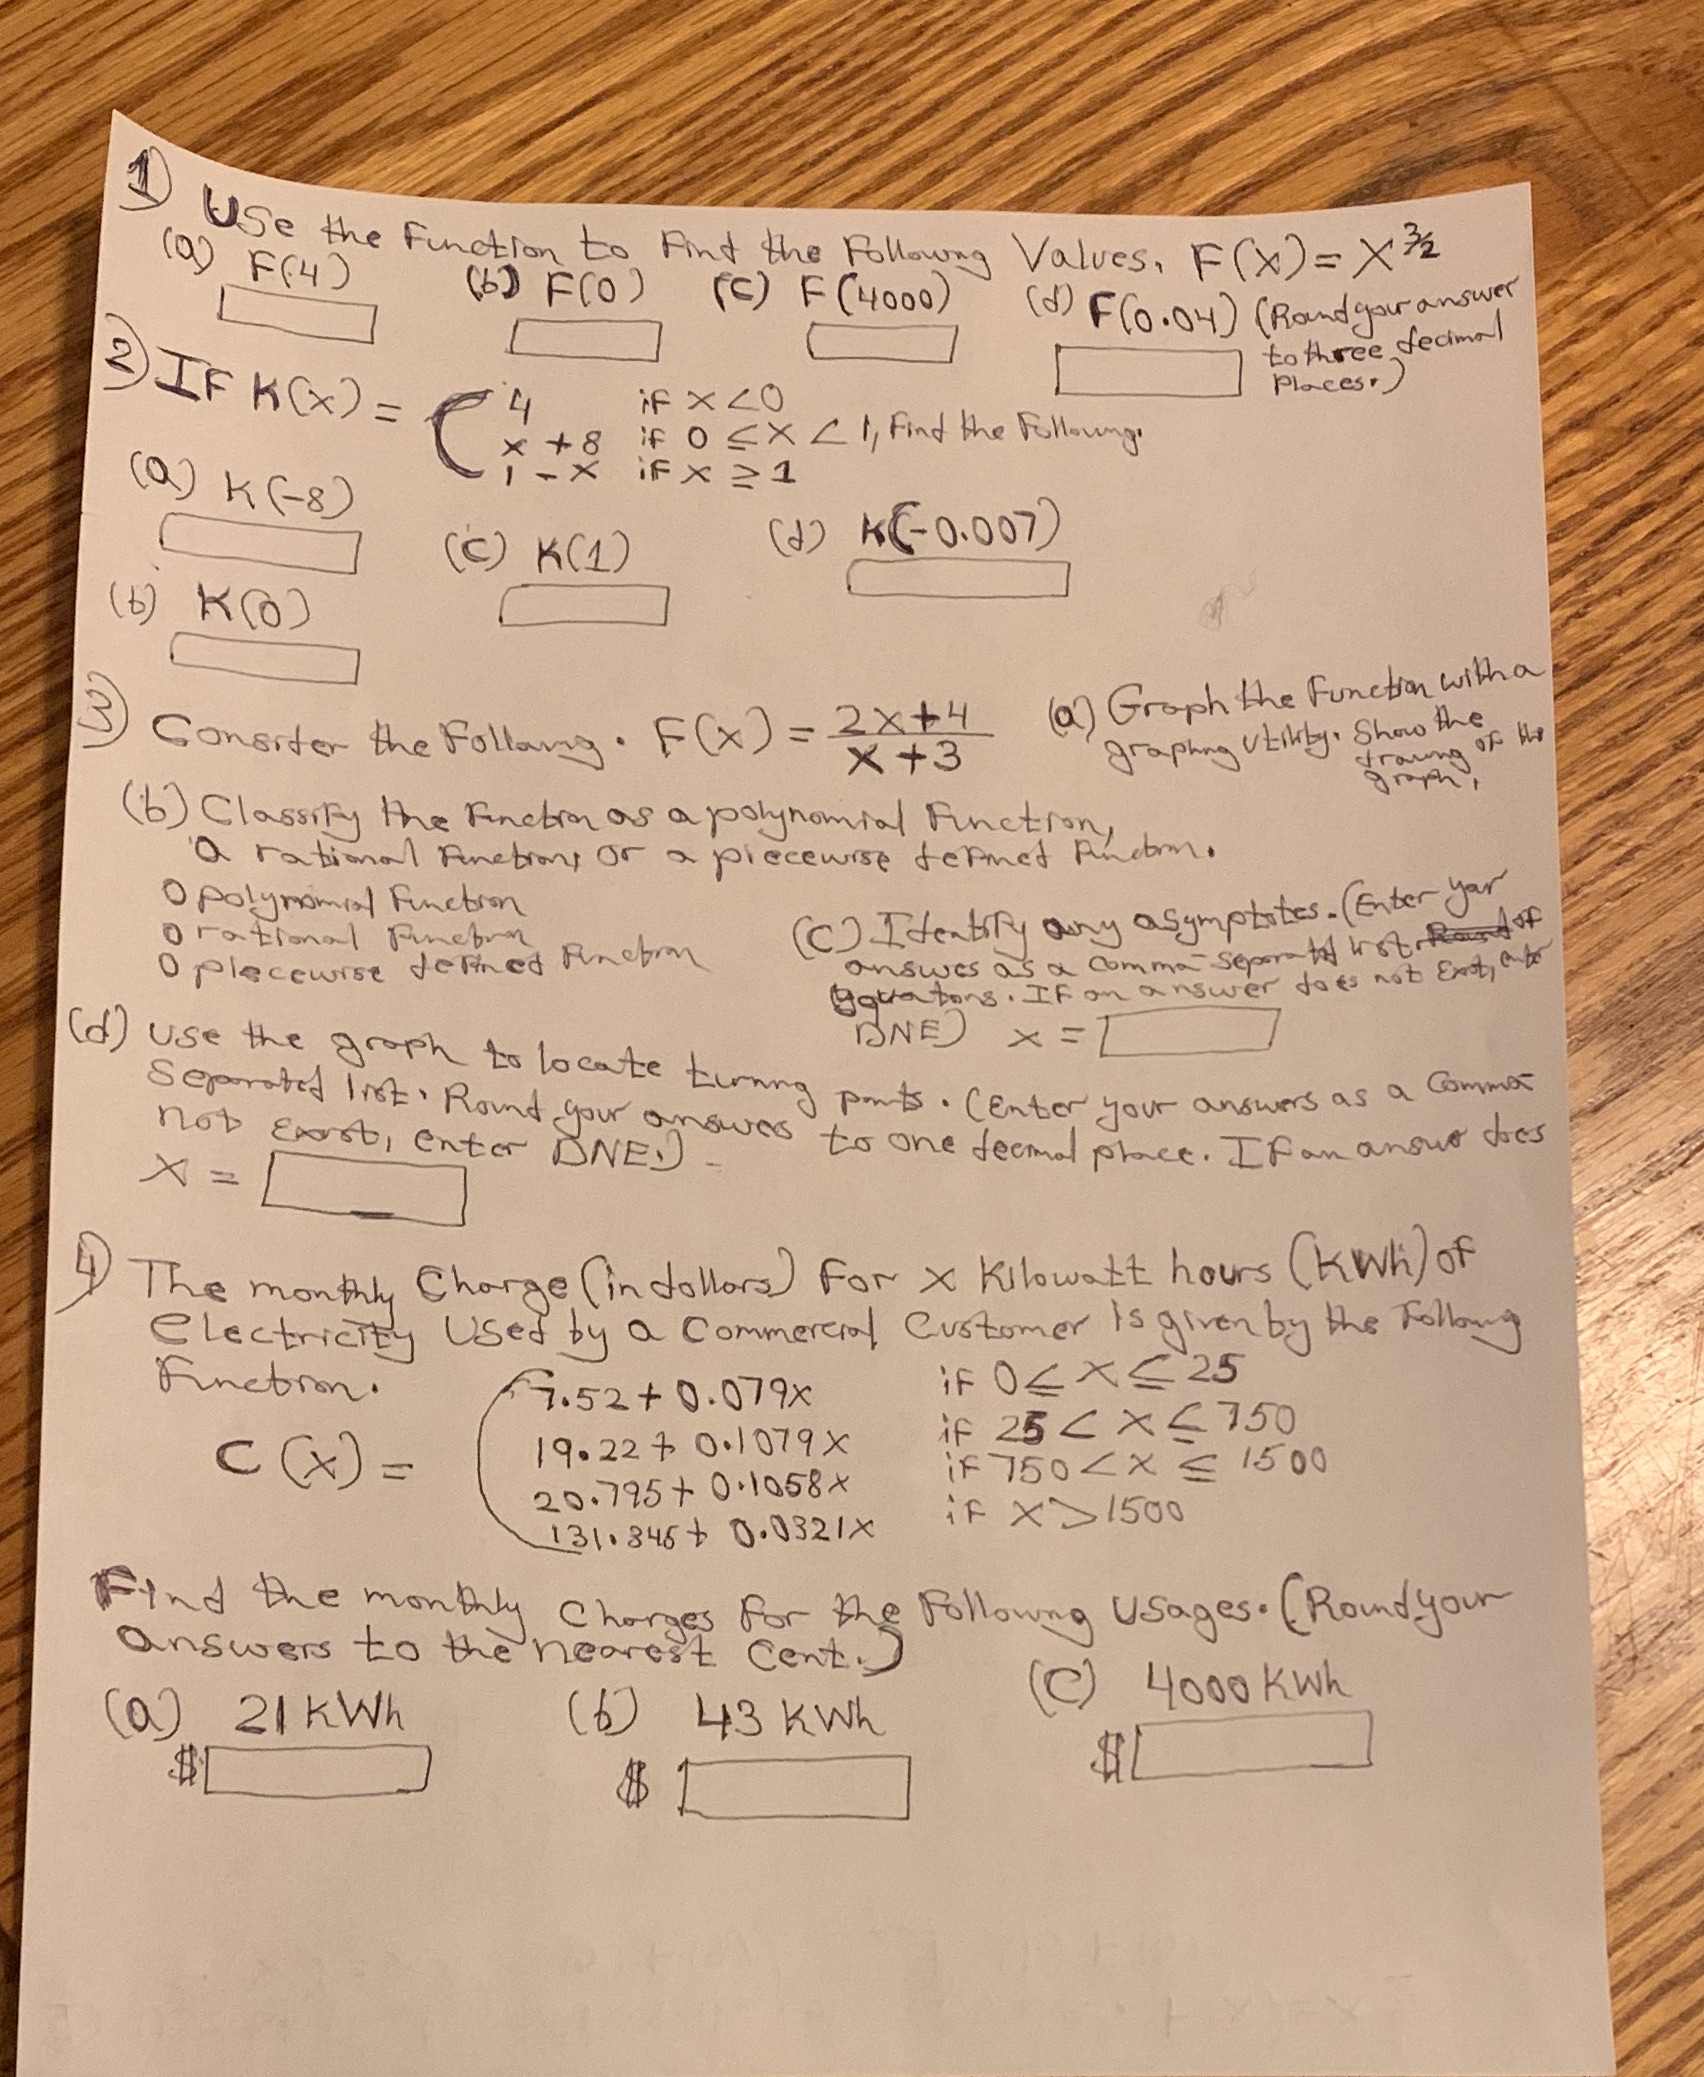 1) Use the Function to Find the Following Values. F(x) = x^3/2
(a) F(4) (b) F(0) (c) F(4000) (d) F(0.04) (Round your answer
to three decimal
places.)
2) IF K(x) = { 4 if x < 0
x + 8 if 0 ≤ x < 1, Find the Following.
1 - x if x ≥ 1
(a) K(-8)
(c) K(1) (d) K(-0.007)
(b) K(0)
3) Consider the Following. F(x) = 2x+4 / x+3 (a) Graph the Function with a
graphing utility. Show the
drawing of the
graph.
(b) Classify the Function as a polynomial Function,
a rational Function, or a piecewise defined Function.
O polynomial Function
O rational Function
O piecewise defined Function
(c) Identify any asymptotes. (Enter your
answers as a comma-separated list of
equations. IF an answer does not Exist, enter
DNE) x =
(d) use the graph to locate turning points. (Enter your answers as a comma-
separated list. Round your answers to one decimal place. IF an answer does
not exist, enter DNE.)
x =
4) The monthly Charge (in dollars) For x Kilowatt hours (KWh) of
electricity Used by a Commercial Customer is given by the Following
Function.
C(x) = { 7.52 + 0.079x if 0 ≤ x ≤ 25
19.22 + 0.1079x if 25 < x ≤ 750
20.795 + 0.1058x if 750 < x ≤ 1500
131.345 + 0.0321x if x > 1500
Find the monthly Charges for the Following Usages. (Round your
answers to the nearest Cent.)
(a) 21 KWh (b) 43 KWh (c) 4000 KWh
$ $ $